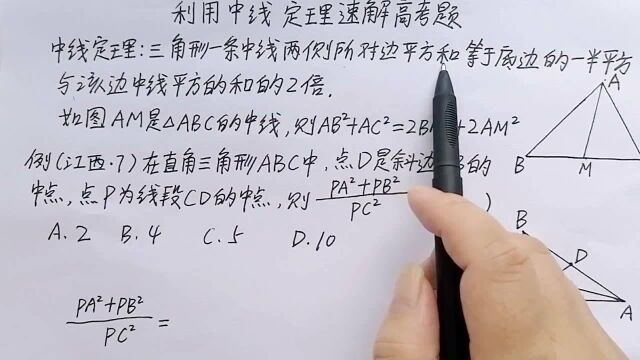 利用中线定理速解高考题
中线定理:三角形一条中线两侧所对边平方和等于底边的一半平方
与该边中线平方的和的2倍.
如图AM是△ABC的中线,则AB²+AC²=2B +2AM²
例(江西·7)在直角三角形ABC中,点D是斜边 B的
中点,点P为线段CD的中点,则 PA²+PB²/PC² )
A.2 B.4 C.5 D.10
PA²+PB²/PC² =
A
B
M
B
D
A